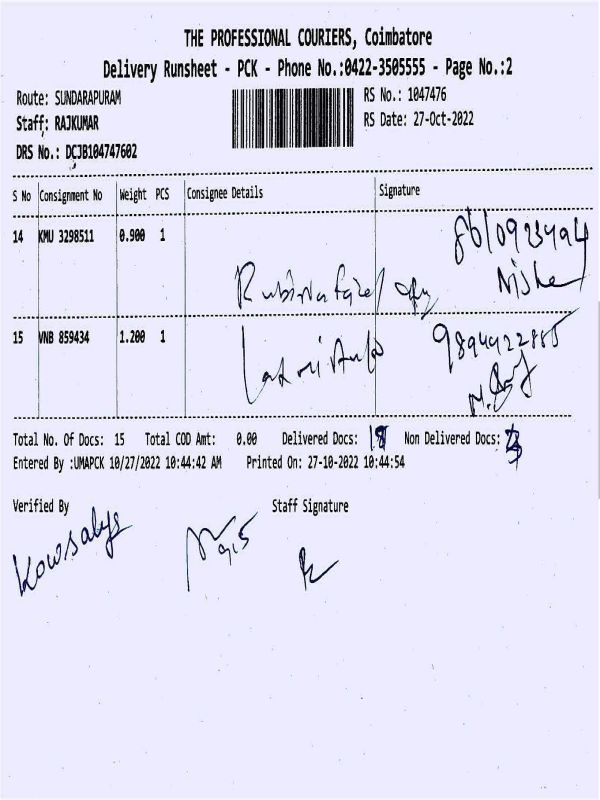 THE PROFESSIONAL COURIERS, Coimbatore
Delivery Runsheet - PCK - Phone No.:0422-3505555 - Page No.:2
Route: SUNDARAPURAM
RS No.: 1047476
Staff: RAJKUMAR
RS Date: 27-Oct-2022
DRS No.: DCJB104747602
S No Consignment No Weight PCS Consignee Details Signature
14 KMU 3298511 0.900 1
Nisha
15 VNB 859434 1.200 1
Total No. Of Docs: 15 Total COD Amt: 0.00 Delivered Docs: Non Delivered Docs:
Entered By :UMAPCK 10/27/2022 10:44:42 AM Printed On: 27-10-2022 10:44:54
Verified By Staff Signature
Kowsalya